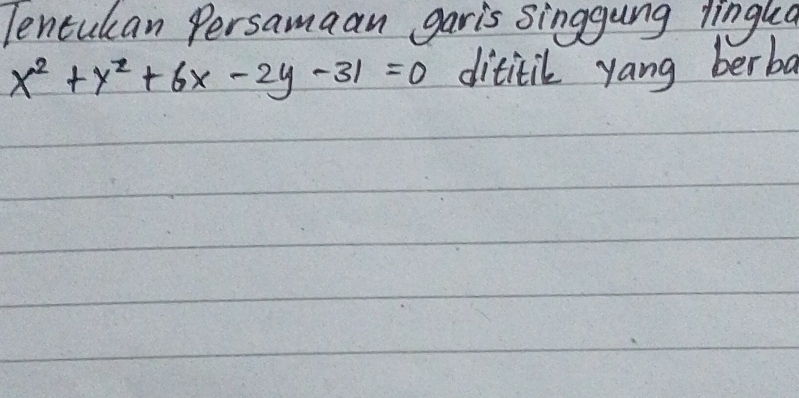 Tentukan Persamaan garis singgung lingka
x² + y² + 6x - 2y - 31 = 0 dititik yang berba